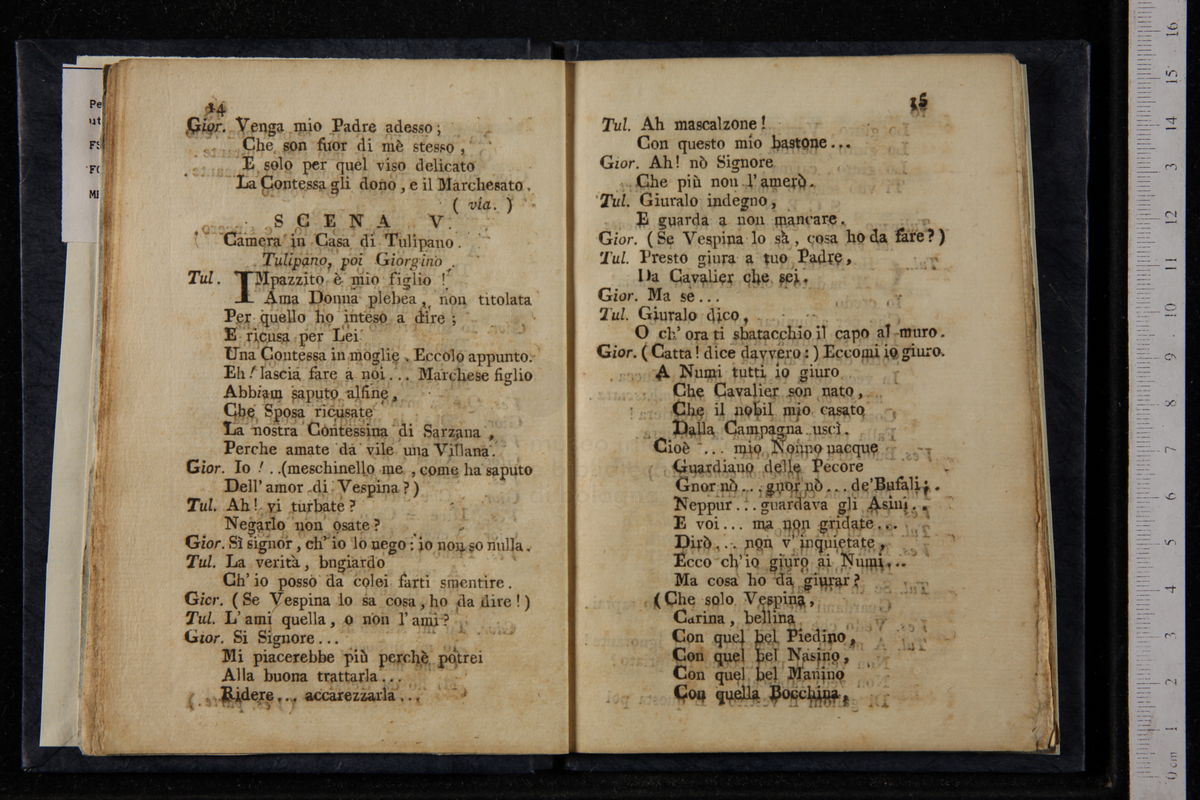 14
Gior. Venga mio Padre adesso ;
Che son fuor di mè stesso ,
E solo per quel viso delicato
La Contessa gli dono , e il Marchesato .
( via. )
SCENA V.
Camera in Casa di Tulipano .
Tulipano, poi Giorgino .
Tul. IMpazzito è mio figlio !
Ama Donna plebea , non titolata
Per quello ho inteso a dire ;
E ricusa per Lei
Una Contessa in moglie . Eccolo appunto.
Eh ! lascia fare a noi ... Marchese figlio
Abbiam saputo alfine ,
Che Sposa ricusate
La nostra Contessina di Sarzana ,
Perche amate da vile una Villana .
Gior. Io ! . .(meschinello me , come ha saputo
Dell' amor di Vespina ? )
Tul. Ah ! vi turbate ?
Negarlo non osate ?
Gior. Sì signor , ch' io lo nego : io non so nulla .
Tul. La verità , bugiardo
Ch' io posso da colei farti smentire .
Gior. ( Se Vespina lo sa cosa , ho da dire ! )
Tul. L' ami quella , o non l' ami ?
Gior. Si Signore ...
Mi piacerebbe più perchè potrei
Alla buona trattarla ...
Ridere ... accarezzarla ...
15
Tul. Ah mascalzone !
Con questo mio bastone ...
Gior. Ah ! nò Signore
Che più non l' amerò .
Tul. Giuralo indegno ,
E guarda a non mancare .
Gior. ( Se Vespina lo sà , cosa ho da fare ? )
Tul. Presto giura a tuo Padre ,
Da Cavalier che sei .
Gior. Ma se ...
Tul. Giuralo dico ,
O ch' ora ti sbatacchio il capo al muro .
Gior. ( Catta ! dice davvero : ) Eccomi io giuro.
A Numi tutti io giuro
Che Cavalier son nato ,
Che il nobil mio casato
Dalla Campagna uscì .
Cioè ... mio Nonno nacque
Guardiano delle Pecore
Gnor nò ... gnor nò ... de' Bufali ; .
Neppur ... guardava gli Asini . .
E voi ... ma non gridate ...
Dirò ... non v' inquietate ,
Ecco ch' io giuro ai Numi ...
Ma cosa ho da giurar ?
( Che solo Vespina ,
Carina , bellina
Con quel bel Piedino ,
Con quel bel Nasino ,
Con quel bel Manino
Con quella Bocchina ,
Pe
ut
FS
MI
0 cm 1 2 3 4 5 6 7 8 9 10 11 12 13 14 15 16